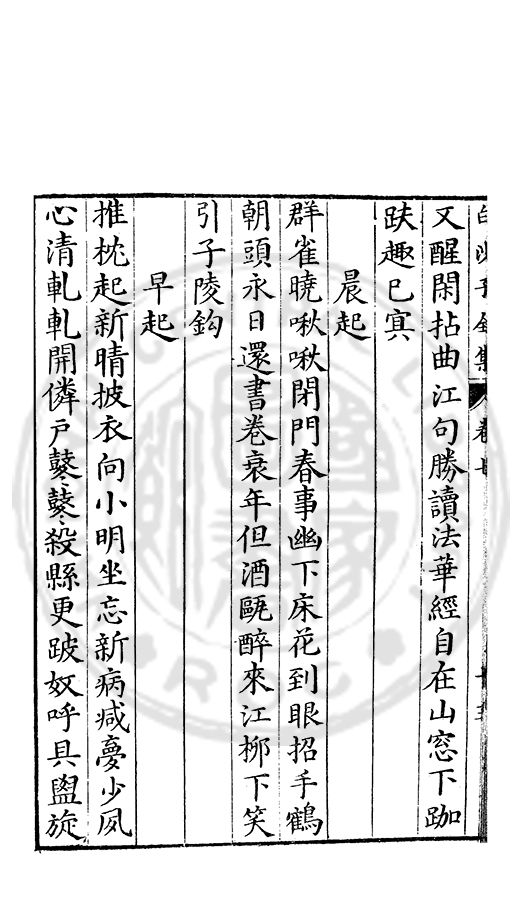 白沙子全集 卷
又醒閑拈曲江句勝讀法華經自在山窓下跏
趺趣已㝠
晨起
群雀曉啾啾閉門春事幽下床花到眼招手鶴
朝頭永日還書卷衰年但酒甌醉來江柳下笑
引子陵鈎
早起
推枕起新晴披衣向小明坐忘新病減夢少夙
心清軋軋開隣戶鼕鼕殺縣更跛奴呼具盥旋